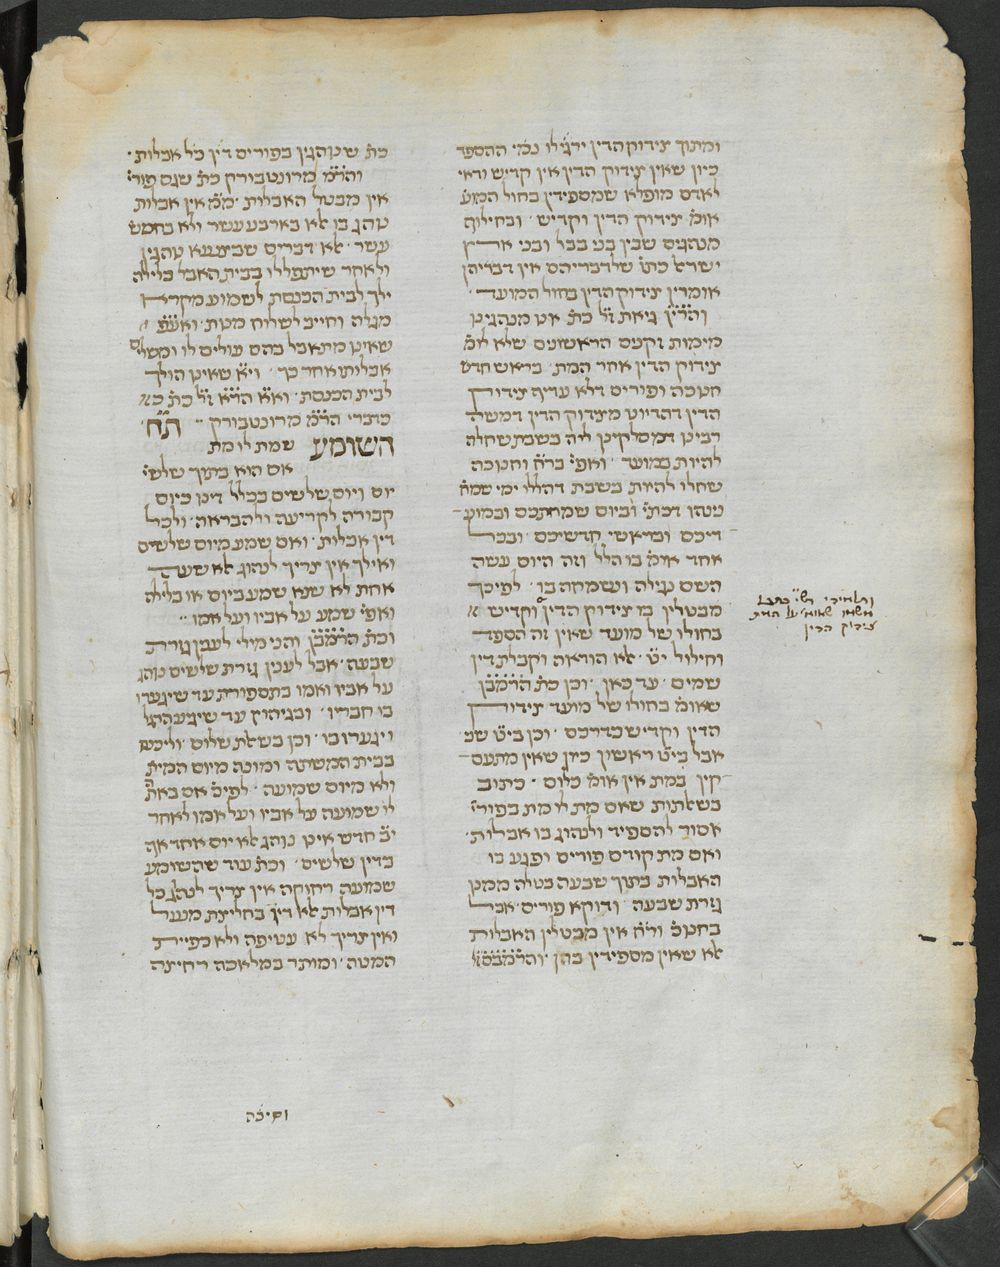 ומתוך צידוק הדין ירגילו גמי ההספד
כיון שאין צידוק הדין אין קדיש ודאי
לאדם מופלא שמספידין בחול המוע'
אומ' צידוק הדין וקדיש ׳ ובחילוף
מנהגים שבין בני בבל ובני ארץ
ישראל כתו' שלדבריהם אין דבריהן
אומרין צידוק הדין בחול המועד ׳
והר"ץ גיאת ז"ל כת' אנו מנהגינו
מימות זקנים הראשונים שלא לומ'
צידוק הדין אחר המת ׳ בראש חדש
חנוכה ופורים דלא עדיף צידוק
הדין דהדיוט מצדוק הדין דמשה
רבינו דמסלקינן ליה בשבת שחלה
להיות במועד ׳ ואפי' בר"ח וחנוכה
שחלו להיות בשבת דהללו ימי שמח'
נינהו דכתי' וביום שמחתכם ובמוע
דיכם ובראשי חדשיכם ׳ ובכל
אחד אומ' בו הלל וזה היום עשה
השם נגילה ונשמחה בו ׳ לפיכך
מבטלין בו צידוק הדין וקדיש א
בחולו של מועד שאין זה הספד
וחילול י"ט ׳ אלא הודאה וקבלת דין
שמים ׳ עד כאן ׳ וכן כת' הרמב"ן
שאומ' בחולו של מועד צידוק
הדין וקדיש כדרכם ׳ וכן בי"ט שני
אבל בי"ט ראשון כיון שאין מתעס
קין במת אין אומ' כלום ׳ כתוב
בשאלתות שאם מת לו מת בפורי'
אסור להספיד ולנהוג בו אבלות ׳
ואם מת קודם פורים ופגע בו
האבלות בתוך שבעה בטלה ממנו
גזרת שבעה ׳ ודוקא פורים אבל
בחנוכ' ור"ח אין מבטלין האבלות
אלא שאין מספידין בהן ׳ והרמב"ם ז"ל
כת' שנוהגין בפורים דין כל אבלות ׳
והר"מ מרוטנבורק כת' שגם פורי'
אין מבטל האבלות ׳ מ"מ אין אבלות
נוהג בו לא בארבע עשר ולא בחמש'
עשר ׳ אלא דברים שבצינעא נוהגין
ולאחר שיתפללו בבית האבל בלילה
ילך לבית הכנסת לשמוע מקרא
מגלה וחייב לשלוח מנות ׳ ואע"פ
שאינו מתאבל בהם עולים לו ומשלים
אבלותו אחר כך ׳ וי"א שאינו הולך
לבית הכנסת ׳ וא"א הרא"ש ז"ל כת'
כדברי הר"מ מרוטנבורק ׃ ת"ח׳
השומע שמת לו מת
אם הוא בתוך שלשי'
יום ויום שלשים בכלל דינו כיום
קבורה לקריעה ולהבראה ׳ ולכל
דין אבלות ׳ ואם שמע מיום שלשים
ואילך אין צריך לנהוג אלא שעה
אחת לא שנא שמע ביום או בלילה
ואפי' שמע על אביו ועל אמו ׳
וכת' הרמב"ן והני מילי לענין גזרת
שבעה ׳ אבל לענין גזרת שלשים נוהג
על אביו ואמו בתספורת עד שיגערו
בו חבריו ׳ ובגיהוץ עד שיגיע הרגל
ויגערו בו ׳ וכן בשאלת שלום ׳ וליכנס
בבית המשתה ומונה מיום המית'
ולא מיום שמועה ׳ לפיכ' אם באת'
לו שמועה על אביו ועל אמו לאחר
י"ב חדש אינו נוהג אלא יום אחד אף
בדין שלשים ׳ וכת' עוד שהשומע
שמועה רחוקה אין צריך לנהג כל
דין אבלות אלא דיו בחליצת מנעל
ואין צריך לא עטיפה ולא כפיית
המטה ׳ ומותר במלאכה רחיצה
שאומ' על המת
צידוק הדין
וסיכה